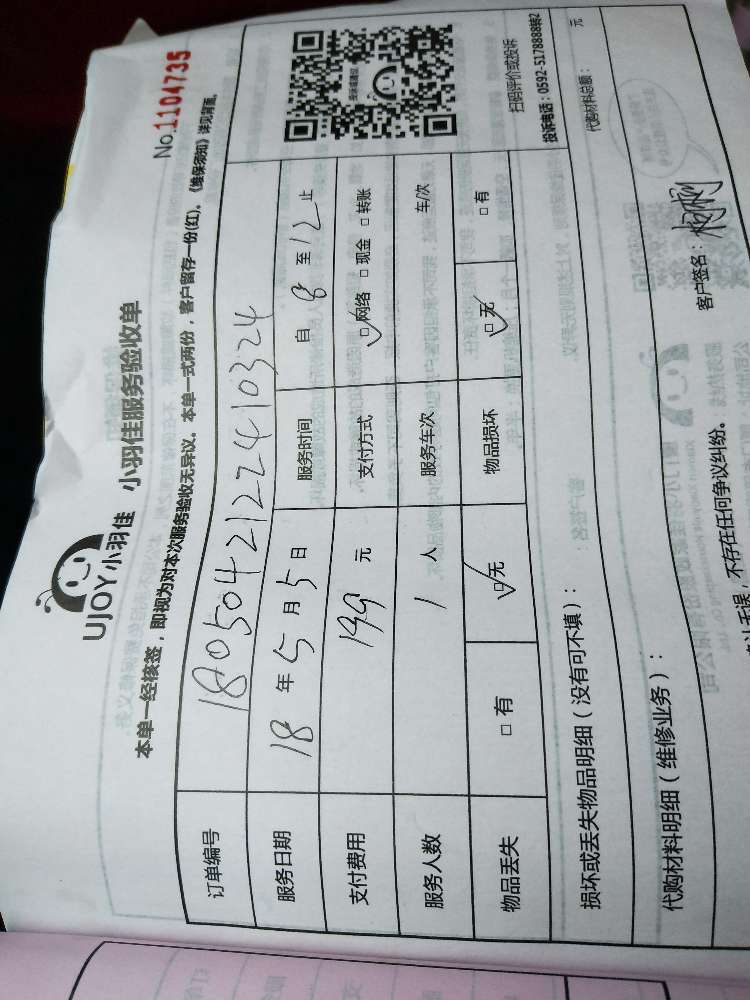 UJOY小羽佳 小羽佳服务验收单
No.1104735
本单一经核签，即视为对本次服务验收无异议。本单一式两份，客户留存一份(红)。《维保须知》详见背面。
订单编号 1805042122410324
服务日期 18 年 5 月 5 日 服务时间 自 8 至 12 止
支付费用 199 元 支付方式 ☑网络 □现金 □转账
服务人数 1 人 服务车次 车/次
物品丢失 □有 ☑无 物品损坏 ☑无 □有
扫码评价或投诉
投诉电话：0592-5178888转2
损坏或丢失物品明细（没有可不填）：
代购材料明细（维修业务）： 代购材料总额： 元
无误，不存在任何争议纠纷。 客户签名：